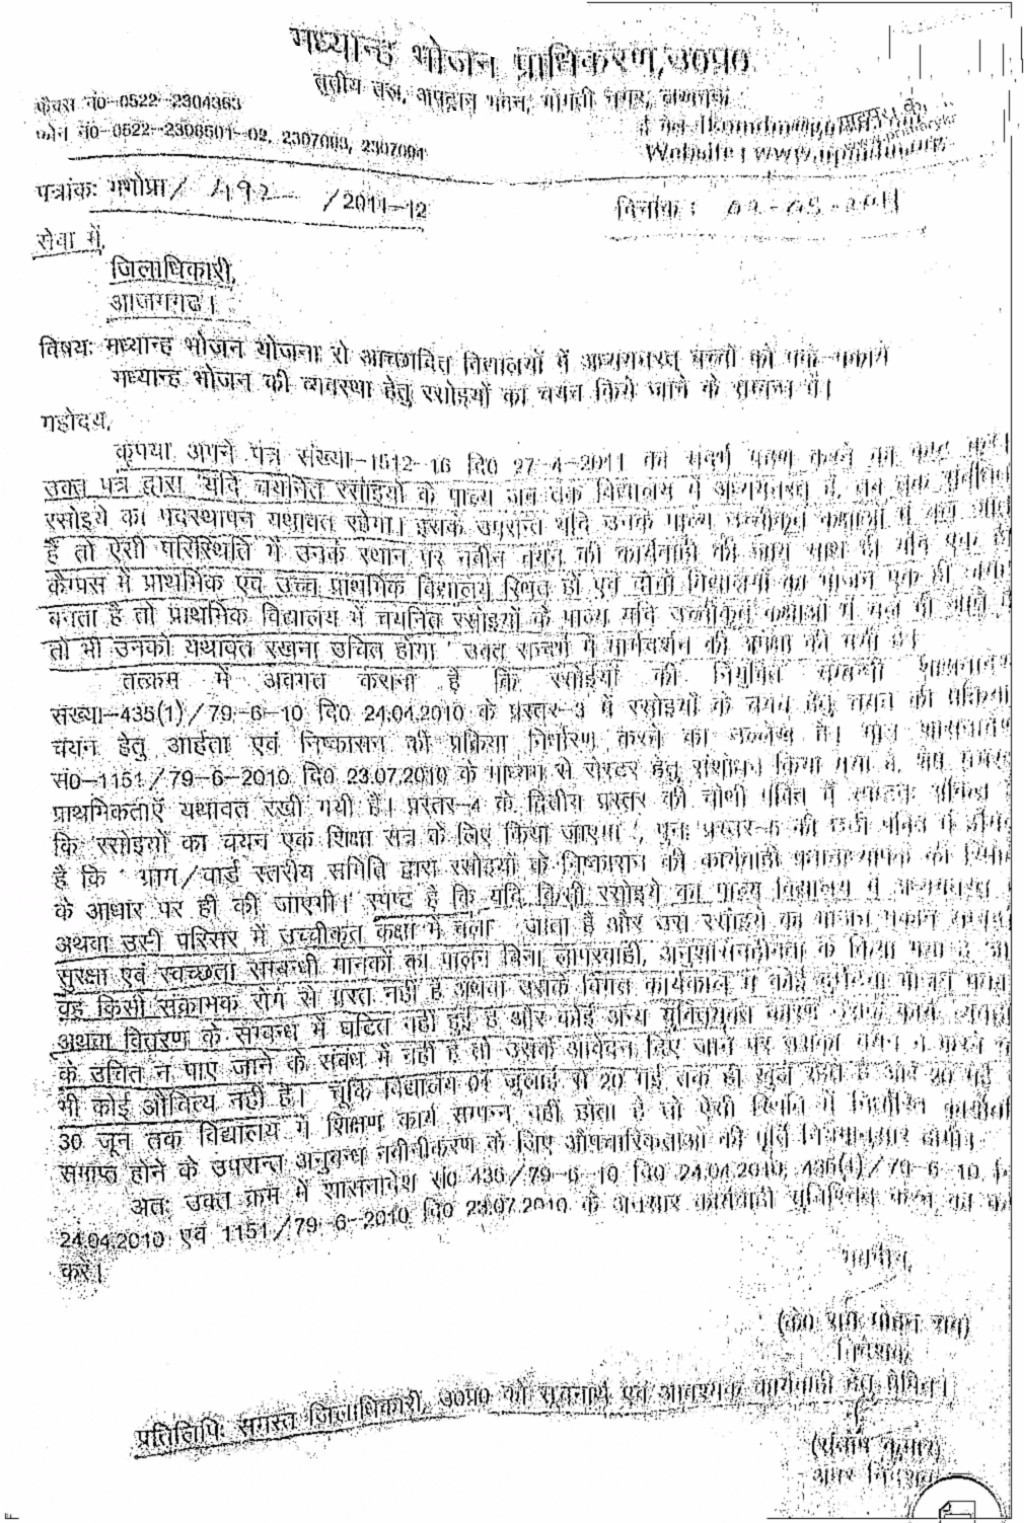 मध्यान्ह भोजन प्राधिकरण,उ0प्र0
तृतीय तल, अपट्रान भवन, गोमती नगर, लखनऊ
फैक्स नं0-0522-2304363
फोन नं0-0522-2308501-02, 2307003, 2307004
Website :
पत्रांकः मभोप्रा/ 492 /2011-12
दिनांक : 02-05-2011
सेवा में,
जिलाधिकारी,
आजमगढ।
विषयः मध्यान्ह भोजन योजना से आच्छादित विद्यालयों में अध्ययनरत् बच्चों को पके-पकाये
मध्यान्ह भोजन की व्यवस्था हेतु रसोइयों का चयन किये जाने के सम्बन्ध में।
महोदय,
कृपया अपने पत्र संख्या-1512-16 दि0 27-4-2011 का संदर्भ ग्रहण करने का कष्ट करें।
उक्त पत्र द्वारा 'यदि चयनित रसोइयों के पाल्य जब तक विद्यालय में अध्ययनरत् है, तब तक संबंधित
रसोइये का पदस्थापन यथावत रहेगा। इसके उपरान्त यदि उनके पाल्य उच्चीकृत कक्षाओं में चले जाते
हैं तो ऐसी परिस्थिति में उनके स्थान पर नवीन चयन की कार्यवाही की जाय साथ ही यदि एक ही
कैम्पस में प्राथमिक एवं उच्च प्राथमिक विद्यालय स्थित हों एवं दोनों विद्यालयों का भोजन एक ही जगह
बनता है तो प्राथमिक विद्यालय में चयनित रसोइयों के पाल्य यदि उच्चीकृत कक्षाओं में चले भी जाते
तो भी उनको यथावत रखना उचित होगा' उक्त सन्दर्भ में मार्गदर्शन की अपेक्षा की गयी है।
तत्क्रम में अवगत कराना है कि रसोइयों की नियुक्ति सम्बन्धी शासनादेश
संख्या-435(1)/79-6-10 दि0 24.04.2010 के प्रस्तर-3 में रसोइयों के चयन हेतु चयन की प्रक्रिया
चयन हेतु आर्हता एवं निष्कासन की प्रक्रिया निर्धारण करने का उल्लेख है। मात्र शासनादेश
सं0-1151/79-6-2010 दि0 23.07.2010 के माध्यम से रोस्टर हेतु संशोधन किया गया है, शेष समस्त
प्राथमिकताएँ यथावत रखी गयी हैं। प्रस्तर-4 के द्वितीय प्रस्तर की चौथी पंक्ति में स्पष्टतः अंकित
कि 'रसोइयों का चयन एक शिक्षा सत्र के लिए किया जाएगा', पुनः प्रस्तर-6 की छठी पंक्ति में
है कि 'ग्राम/वार्ड स्तरीय समिति द्वारा रसोइयों के निष्कासन की कार्यवाही प्रधानाध्यापक की
के आधार पर ही की जाएगी।' स्पष्ट है कि यदि किसी रसोइये का पाल्य विद्यालय में अध्ययनरत
अथवा उसी परिसर में उच्चीकृत कक्षा में चला जाता है और उस रसोइये का भोजन पकाने सम्बन्धी
सुरक्षा एवं स्वच्छता सम्बन्धी मानकों का पालन बिना लापरवाही, अनुशासनहीनता के किया गया है
वह किसी संक्रामक रोग से ग्रस्त नहीं है अथवा उसके विगत कार्यकाल में कोई दुर्घटना भोजन
अथवा वितरण के सम्बन्ध में घटित नहीं हुई है और कोई अन्य युक्तियुक्त कारण उसके कार्य व्यवहार
के उचित न पाए जाने के संबंध में नहीं है तो उसके आवेदन दिए जाने पर उसका चयन न करने
भी कोई औचित्य नहीं है। चूंकि विद्यालय 01 जुलाई से 20 मई तक ही खुले रहते हैं और 20 मई
30 जून तक विद्यालय में शिक्षण कार्य सम्पन्न नहीं होता है तो ऐसी स्थिति में निर्धारित कार्यावधि
समाप्त होने के उपरान्त अनुबन्ध नवीनीकरण के लिए औपचारिकताओं की पूर्ति नियमानुसार होगी।
अतः उक्त क्रम में शासनादेश सं0 435/79-6-10 दि0 24.04.2010, 435(1)/79-6-10
24.04.2010 एवं 1151/79-6-2010 दि0 23.07.2010 के अनुसार कार्यवाही सुनिश्चित करने का
करें।
भवदीय,
(के0 राम मोहन राव)
निदेशक
प्रतिलिपिः समस्त जिलाधिकारी, उ0प्र0 को सूचनार्थ एवं आवश्यक कार्यवाही हेतु प्रेषित।
(संतोष कुमार)
अपर निदेशक